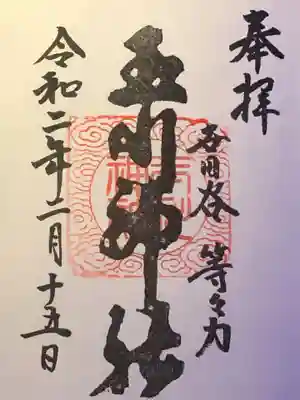 奉拝
世田谷 等々力
玉川神社
令和二年二月十五日